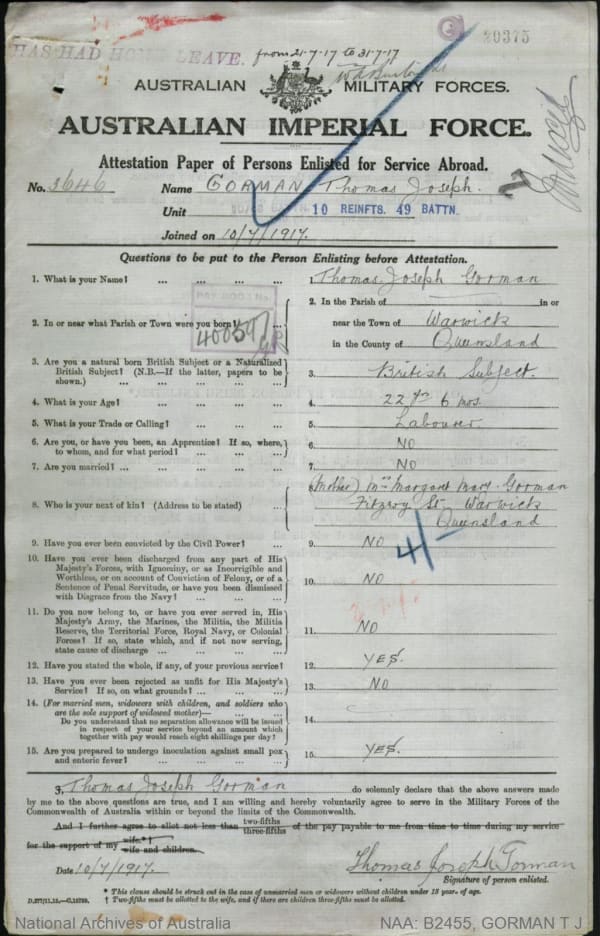 20375
HAS HAD HOME LEAVE. from 21-7-17 to 31-7-17
AUSTRALIAN MILITARY FORCES.
AUSTRALIAN IMPERIAL FORCE.
Attestation Paper of Persons Enlisted for Service Abroad.
No. 3646 Name GORMAN Thomas Joseph.
Unit 10 REINFTS. 49 BATTN.
Joined on 10/7/1917.
Questions to be put to the Person Enlisting before Attestation.
1. What is your Name? ... ... ... ... 1. Thomas Joseph Gorman
2. In or near what Parish or Town were you born? ... 2. In the Parish of in or
near the Town of Warwick
in the County of Queensland
40059
3. Are you a natural born British Subject or a Naturalized
British Subject? (N.B.—If the latter, papers to be
shown.) ... ... ... ... ... 3. British Subject.
4. What is your Age? ... ... ... ... 4. 22 yrs 6 mos.
5. What is your Trade or Calling? ... ... ... 5. Labourer.
6. Are you, or have you been, an Apprentice? If so, where,
to whom, and for what period? ... ... ... 6. NO
7. Are you married? ... ... ... ... ... 7. NO
8. Who is your next of kin? (Address to be stated) ... 8. (Mother) Mrs Margaret Mary Gorman
Fitzroy St. Warwick
Queensland
9. Have you ever been convicted by the Civil Power? ... 9. NO
4/-
10. Have you ever been discharged from any part of His
Majesty's Forces, with Ignominy, or as Incorrigible and
Worthless, or on account of Conviction of Felony, or of a
Sentence of Penal Servitude, or have you been dismissed
with Disgrace from the Navy? ... ... ... 10. NO
11. Do you now belong to, or have you ever served in, His
Majesty's Army, the Marines, the Militia, the Militia
Reserve, the Territorial Force, Royal Navy, or Colonial
Forces? If so, state which, and if not now serving,
state cause of discharge ... ... ... ... 11. NO
12. Have you stated the whole, if any, of your previous service? 12. YES.
13. Have you ever been rejected as unfit for His Majesty's
Service? If so, on what grounds? ... ... ... 13. NO
14. (For married men, widowers with children, and soldiers who
are the sole support of widowed mother)—
Do you understand that no separation allowance will be issued
in respect of your service beyond an amount which
together with pay would reach eight shillings per day? 14.
15. Are you prepared to undergo inoculation against small pox
and enteric fever? ... ... ... ... 15. YES.
3, Thomas Joseph Gorman do solemnly declare that the above answers made
by me to the above questions are true, and I am willing and hereby voluntarily agree to serve in the Military Forces of the
Commonwealth of Australia within or beyond the limits of the Commonwealth.
And I further agree to allot not less than two-fifths three-fifths of the pay payable to me from time to time during my service
for the support of my wife.* † wife and children.
Date 10/7/1917. Thomas Joseph Gorman
Signature of person enlisted.
* This clause should be struck out in the case of unmarried men or widowers without children under 18 year. of age.
† Two-fifths must be allotted to the wife, and if there are children three-fifths must be allotted.
National Archives of Australia NAA: B2455, GORMAN T J